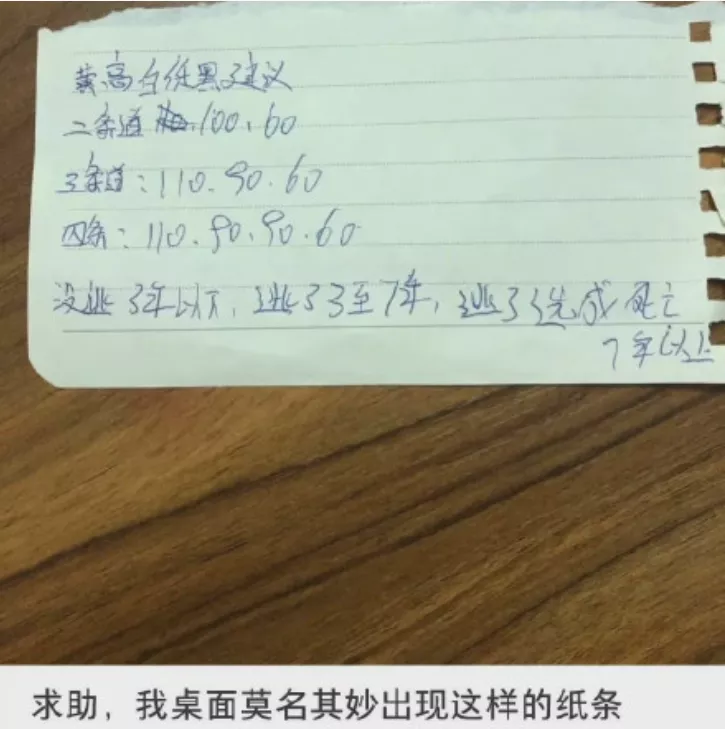 黄高白低黑建议
二条道 100、60
3条道：110、90、60
四条：110、90、90、60
没逃3年以下，逃了3至7年，逃了造成死亡
7年以上
求助，我桌面莫名其妙出现这样的纸条